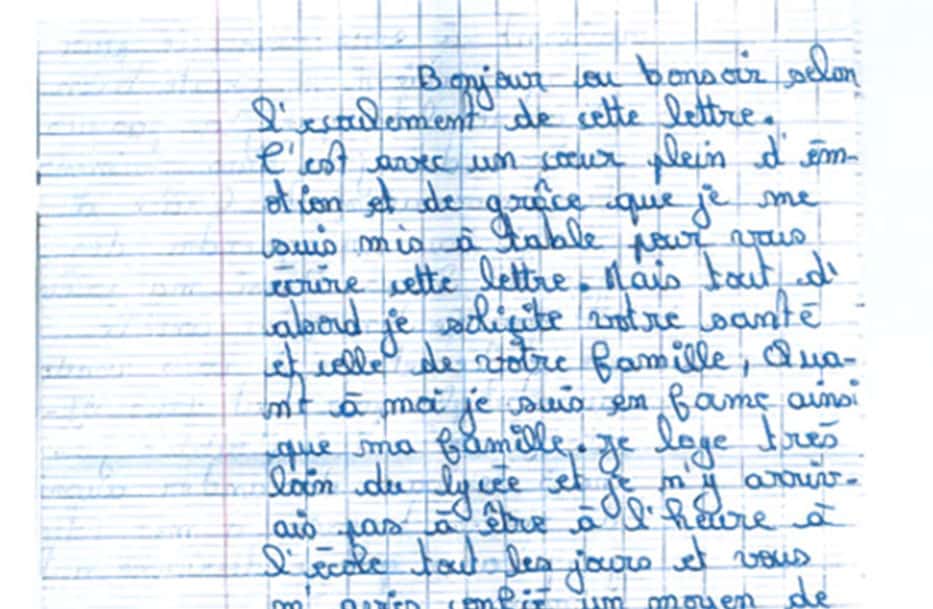 Bonjour ou bonsoir selon
l'escoulement de cette lettre.
C'est avec un cœur plein d'ém-
otion et de grâce que je me
suis mis à table pour vous
écrire cette lettre. Mais tout d'
abord je soliçite votre santé
et celle de votre famille, Qua-
nt à moi je suis en fome ainsi
que ma famille. Je loge très
loin du lycée et je n'y arriv-
ais pas à être à l'heure à
l'école tout les jours et vous
m'aviez confié un moyen de